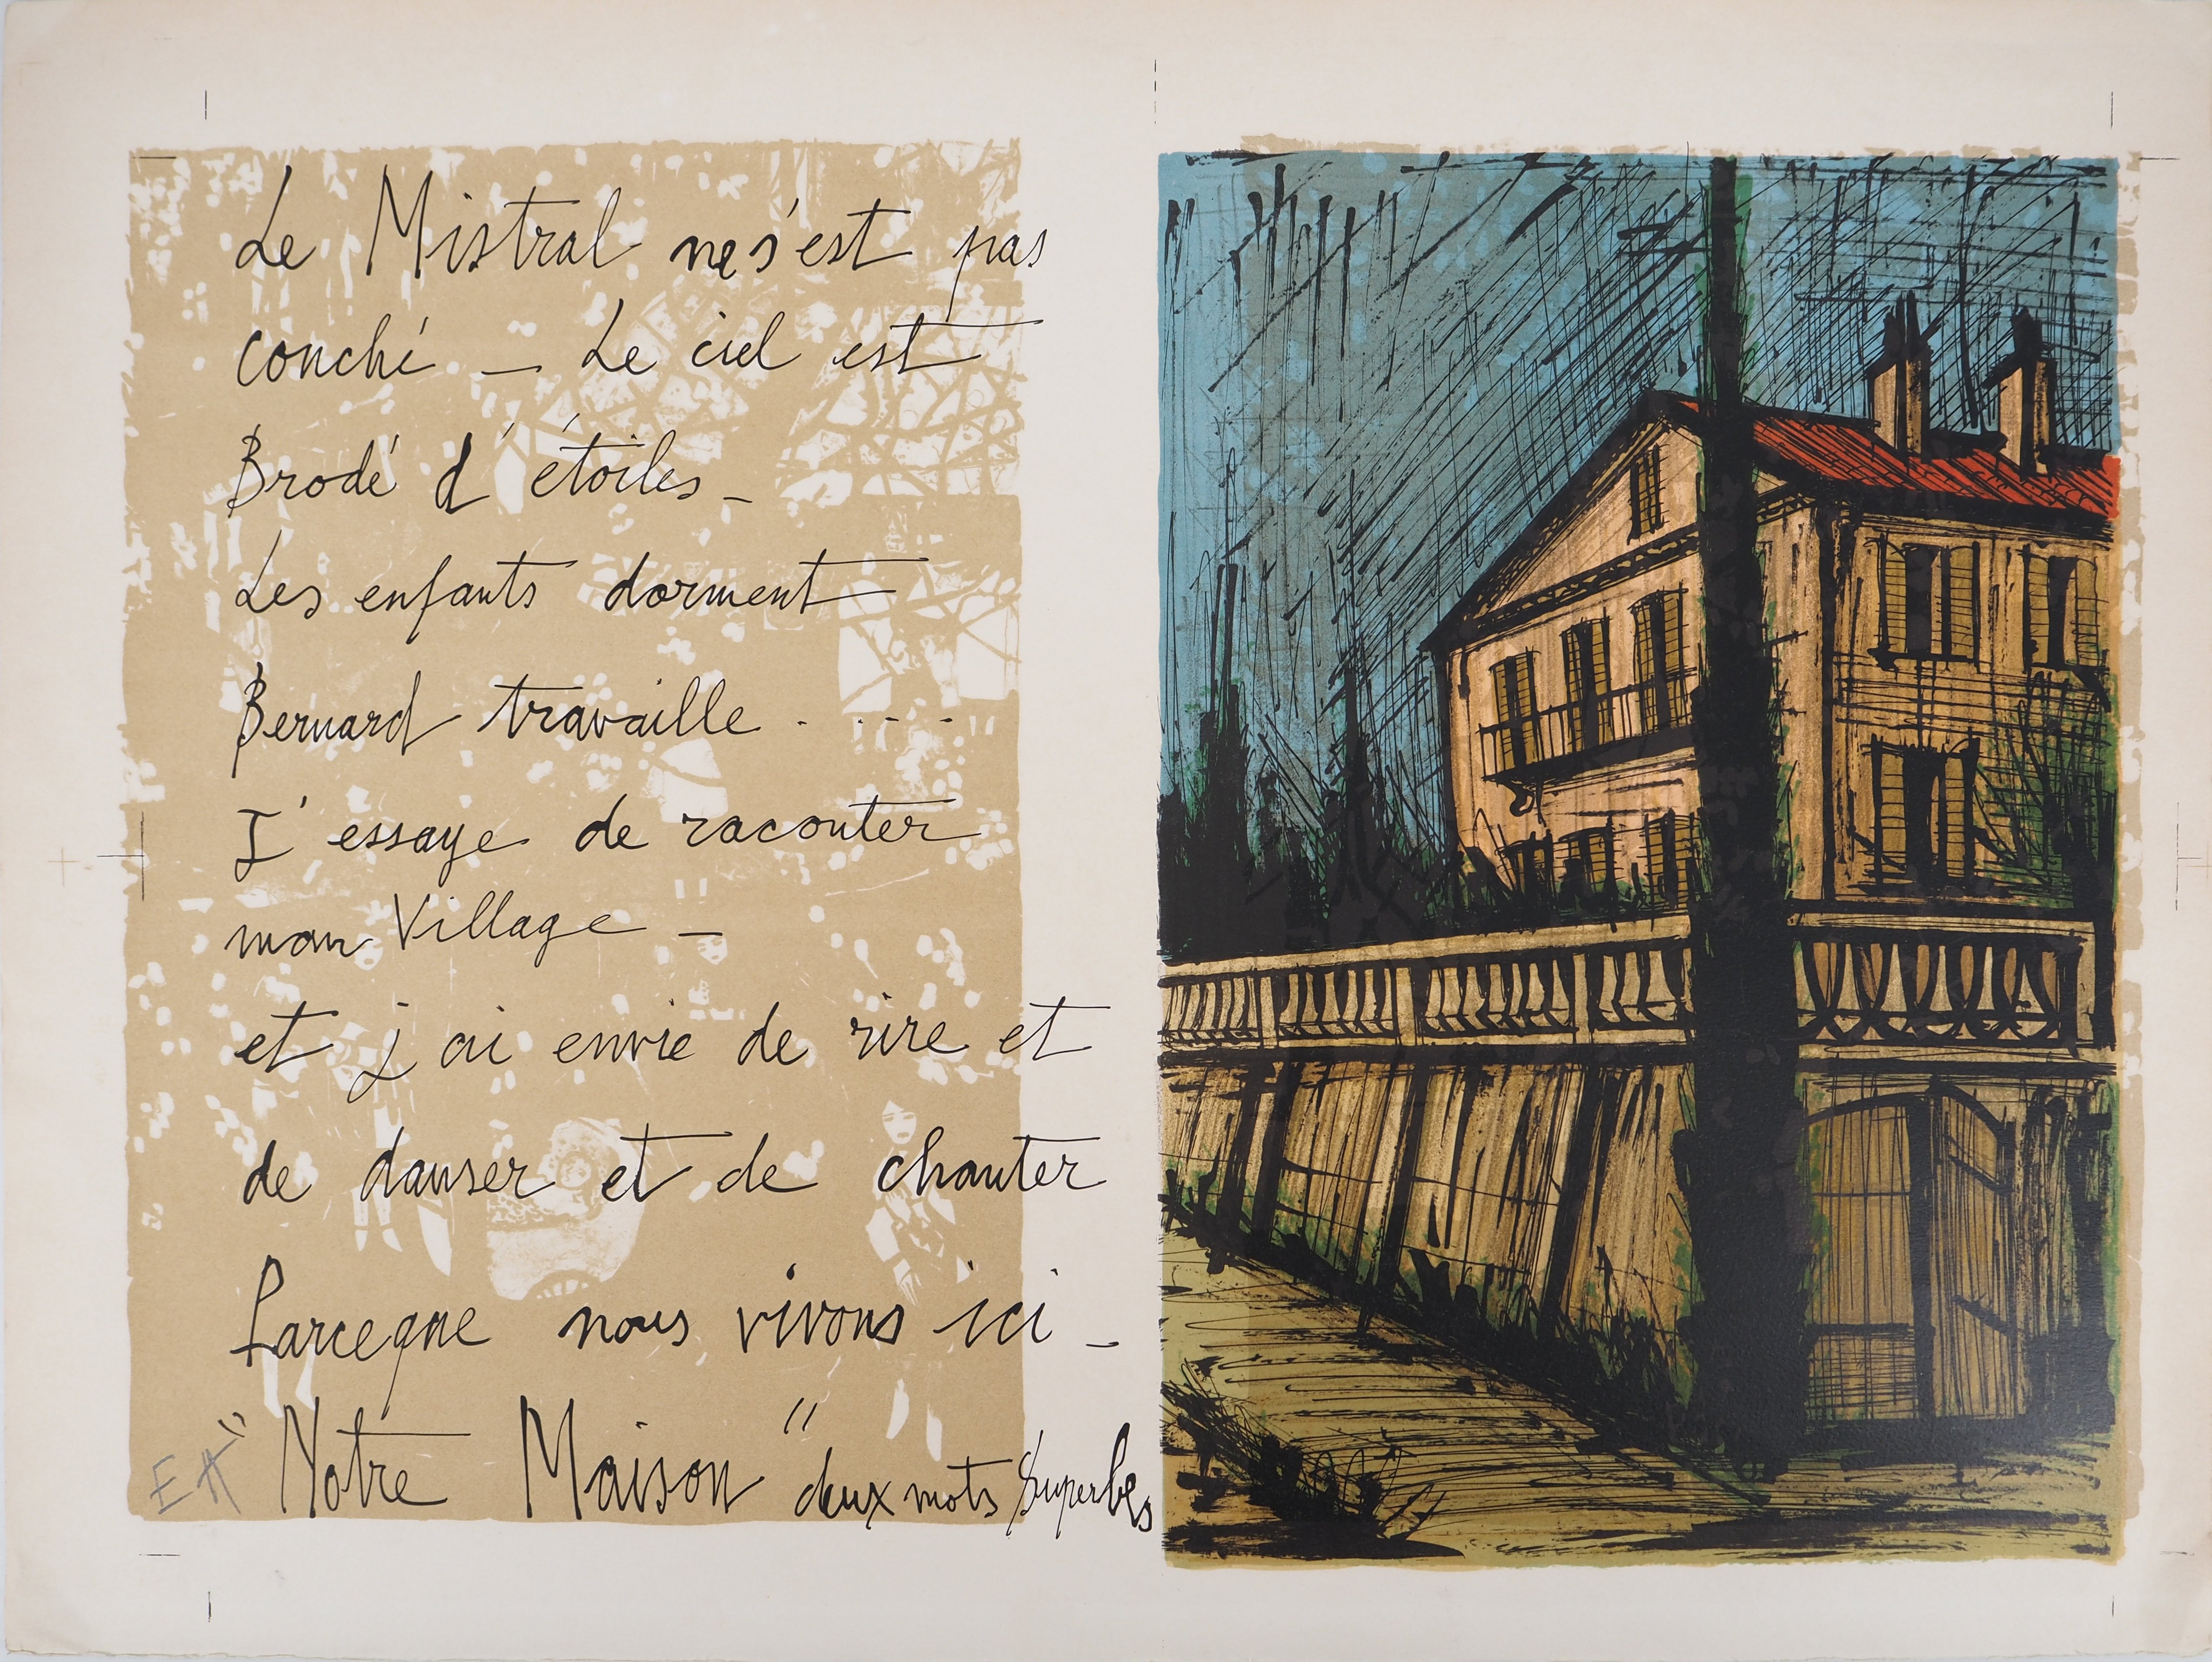 Le Mistral ne s'est pas
couché _ Le ciel est
Brodé d'étoiles _
Les enfants dorment
Bernard travaille . . . .
J'essaye de raconter
mon Village _
et j ai envie de rire et
de danser et de chanter
Parceque nous vivons ici _
EA "Notre Maison" deux mots Superbes